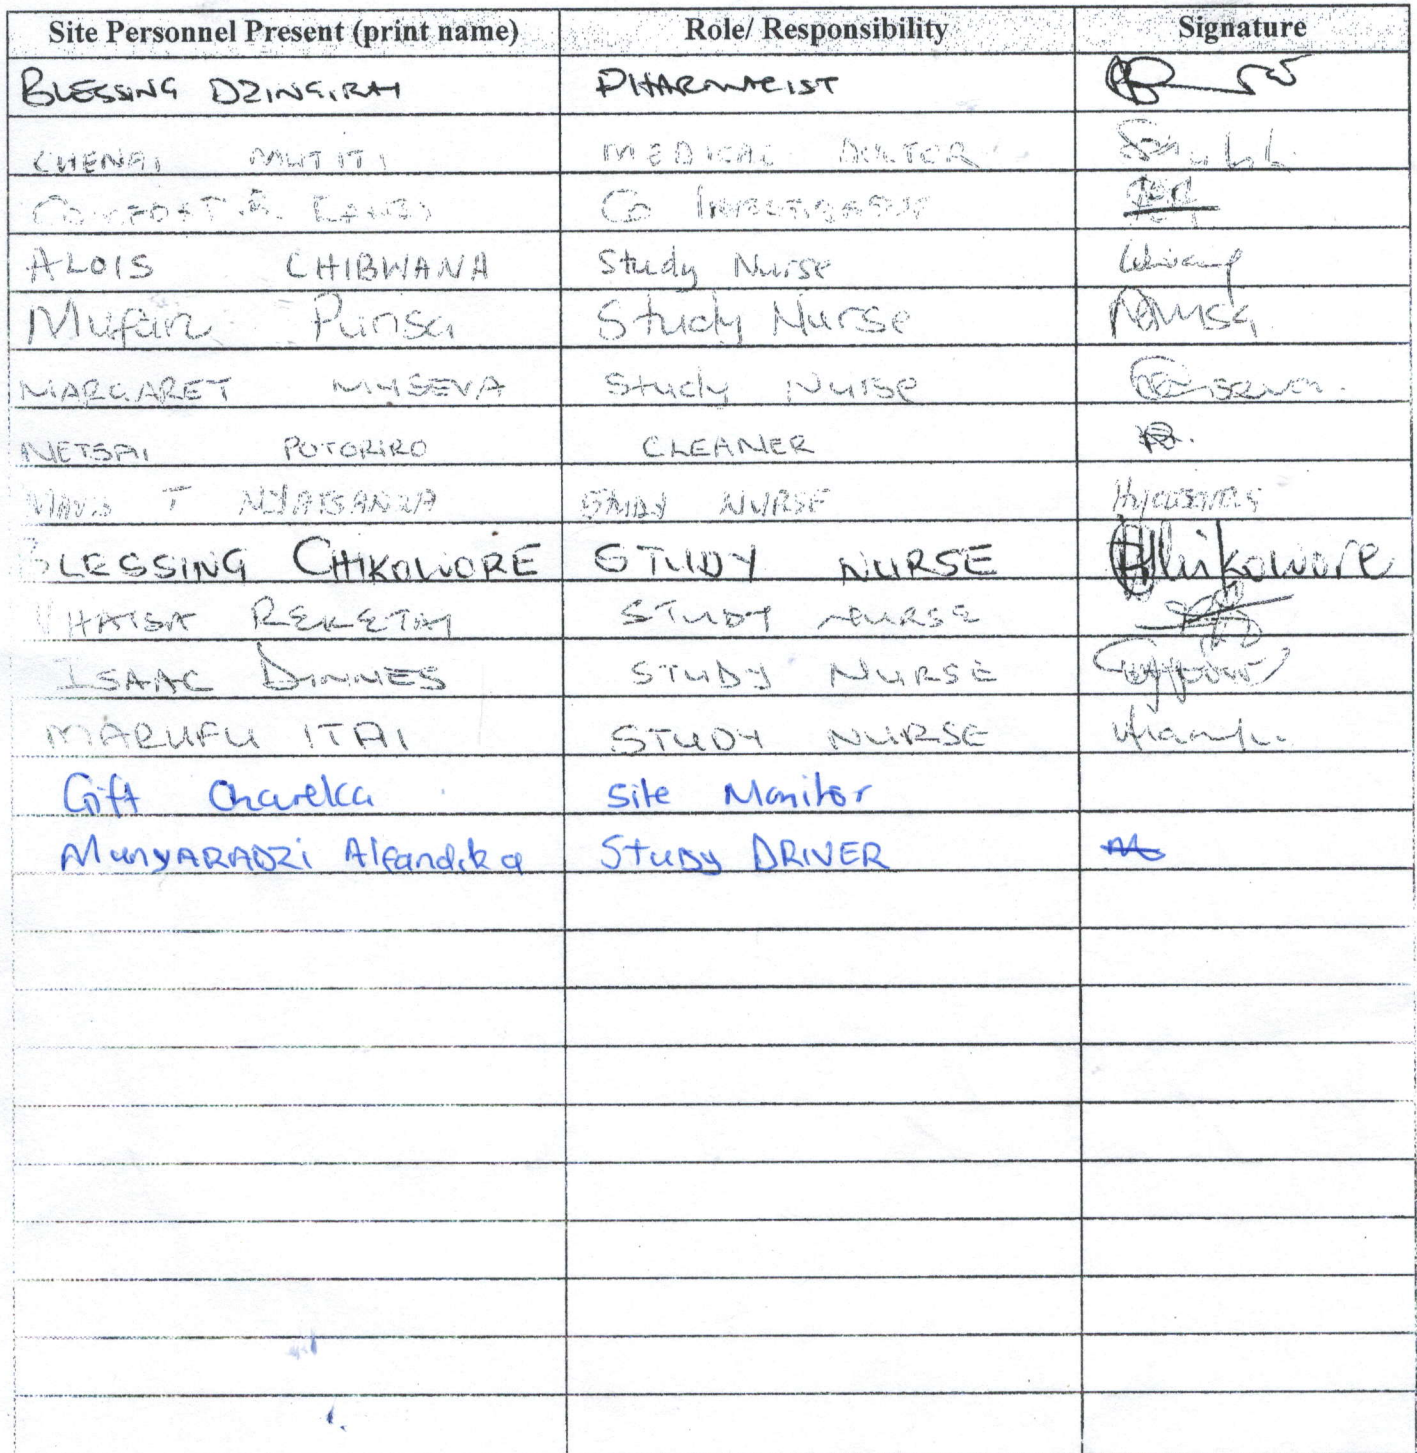 Site Personnel Present (print name) Role/ Responsibility Signature
BLESSING DZINGIRAI PHARMACIST
CHENAI MUTITI MEDICAL DOCTOR
CO INVESTIGATOR
ALOIS CHIBWANA Study Nurse
Mufaro Punsa Study Nurse
MARGARET MUSEVA Study Nurse
NETSAI POTORIRO CLEANER
MAVIS T NYATSANZA STUDY NURSE
BLESSING CHIKOWORE STUDY NURSE Chikowore
REKETAI STUDY NURSE
ISAAC DINNES STUDY NURSE
MARUFU ITAI STUDY NURSE
Gift Chareka Site Monitor
MunyARADZi Alfandika STUDy DRIVER